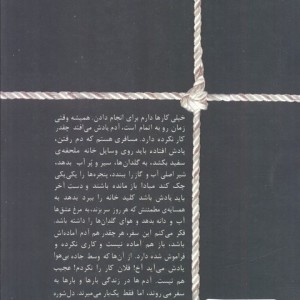 خیلی کارها دارم برای انجام دادن. همیشه وقتی
زمان رو به اتمام است، آدم یادش می‌افتد چقدر
کار نکرده دارد. مسافری هستم که دم رفتن،
یادش افتاده باید روی وسایل خانه ملحفه‌ی
سفید بکشد، به گلدان‌ها، سیر و پُر آب بدهد،
شیر اصلی آب و گاز را ببندد، پنجره‌ها را یکی‌یکی
چک کند مبادا باز مانده باشند و دست آخر
یادش باشد کلید خانه را ببرد بدهد به
همسایه‌ی مطمئنش که هر روز سر بزند، به مرغ عشق‌ها
آب و دانه بدهد و هوای گلدان‌ها را داشته باشد.
فکر می‌کنم این سفر، هر چقدر هم آدم آماده‌اش
باشد، باز هم آماده نیست و کاری نکرده و
فراموش شده دارد. از آن‌ها که وسط جاده بی‌هوا
یادش می‌آید آخ! فلان کار را نکردم! عجیب
هم نیست. آدم‌ها در زندگی بارها و بارها به
سفر می‌روند، اما فقط یک‌بار می‌میرند. دل‌شوره